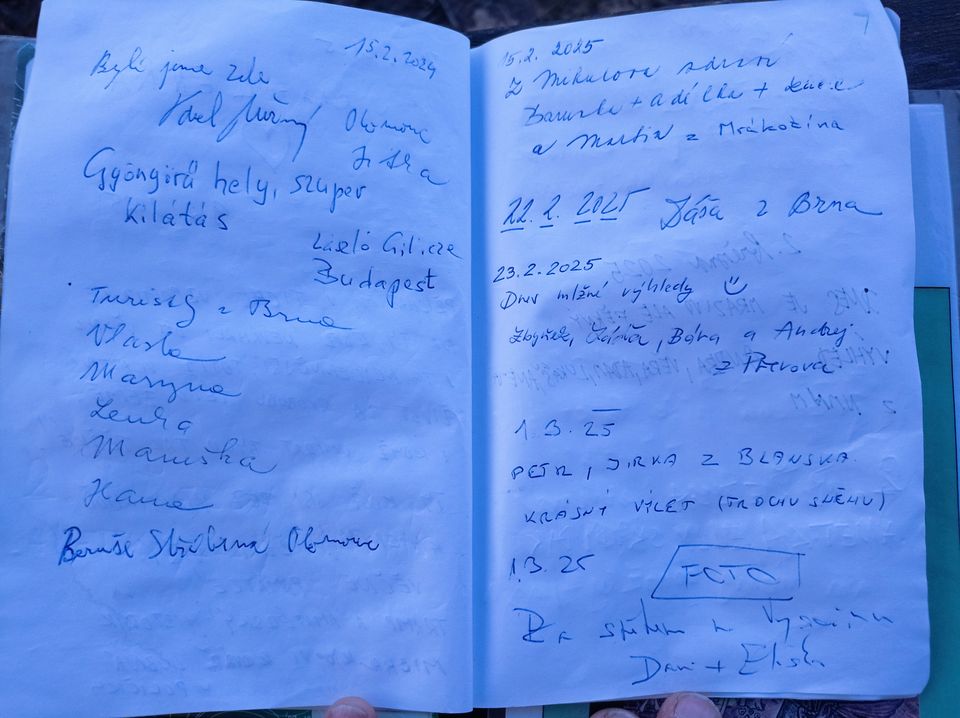 15.2.2024
Byli jsme zde
Olomouc
Jitka
Gyöngörű hely, szuper
kilátás
László Gilicze
Budapest
Turisty z Brna
Vlasta
Maryna
Lenka
Maruška
Hana
Beruše Stříbrná Olomouc
15.2. 2025
Z Mikulova zdraví
Baruška + Adélka + Lucie
a Martin z Mrákotína
22. 2. 2025 Dáša z Brna
23.2.2025
Dnes mlžné výhledy
Zbyněk, Bára a Andrej
z Přerova
1.3.25
PETR, JIRKA Z BLANSKA
KRÁSNÝ VÝLET (TROCHU SNĚHU)
1.3.25
FOTO
Za
Dani + Eliška